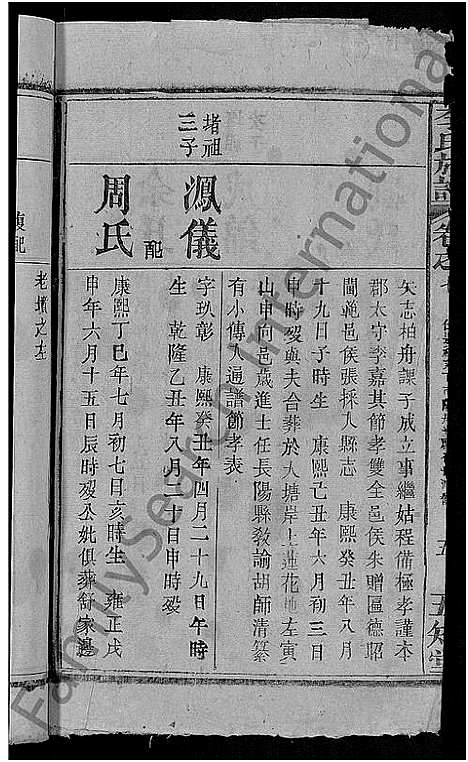 李氏族譜
五知堂
矢志柏舟課子成立事繼姑程備極孝謹本
郡太守李嘉其節孝雙全邑侯朱贈匾德昭
閫範邑侯張採入縣志 康熙癸丑年八月
十九日子時生 康熙己丑年六月初三日
申時歿與夫合葬於大塘岸上蓮花地左寅
山申向邑歲進士任長陽縣教諭胡師清纂
有小傳入通譜節孝表
堵祖三子
鳳儀
字玖彰 康熙癸丑年四月二十九日午時
生 乾隆乙丑年八月二十日申時歿
配
周氏
康熙丁巳年七月初七日亥時生 雍正戌
申年六月十五日辰時歿公妣俱葬舒家邊
老墳之左
復配
FamilySearch International